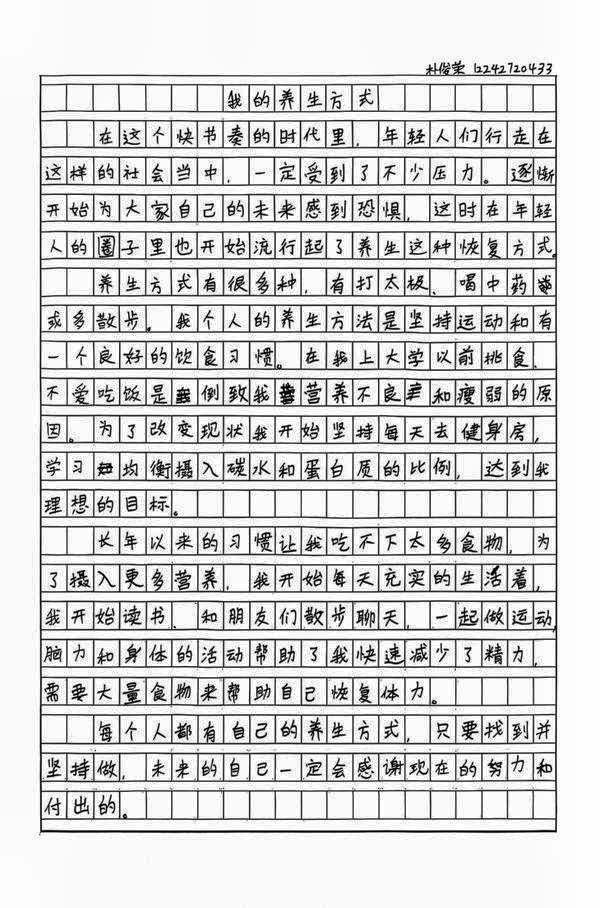 朴俊荣 12242720433
我的养生方式
在这个快书奏的时代里，年轻人们行走在
这样的社会当中，一定受到了不少压力。逐惭
开始为大家自己的未来感到恐惧，这时在年轻
人的圈子里也开始流行起了养生这种恢复方式。
养生方式有很多种，有打太极、喝中药
或多散步。我个人的养生方法是坚持运动和有
一个良好的饮食习惯。在我上大学以前挑食、
不爱吃饭是倒致我营养不良和瘦弱的原
因。为了改变现状我开始坚持每天去健身房，
学习均衡摄入碳水和蛋白质的比例，达到我
理想的目标。
长年以来的习惯让我吃不下太多食物，为
了摄入更多营养，我开始每天充实的生活着，
我开始读书、和朋友们散步聊天，一起做运动，
脑力和身体的活动帮助了我快速减少了精力，
需要大量食物来帮助自己恢复体力。
每个人都有自己的养生方式，只要找到并
坚持做，未来的自己一定会感谢现在的努力和
付出的。